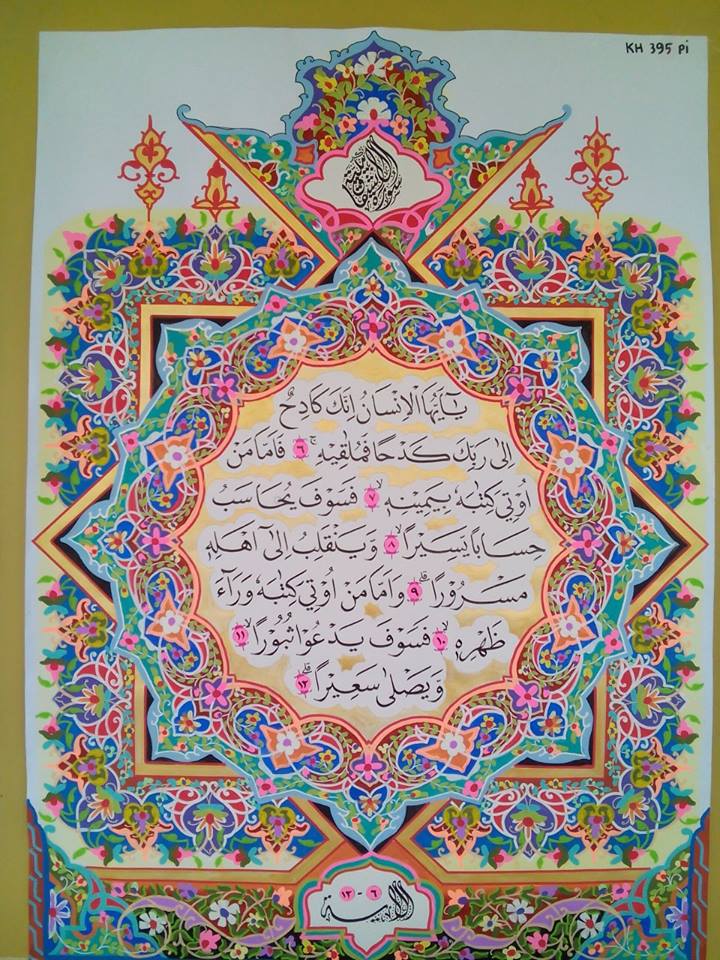 KH 395 Pi
سورة الانشقاق مكية
يٰٓاَيُّهَا الْاِنْسَانُ اِنَّكَ كَادِحٌ
اِلٰى رَبِّكَ كَدْحًا فَمُلٰقِيْهِ ۚ ٦ فَاَمَّا مَنْ
اُوْتِيَ كِتٰبَهٗ بِيَمِيْنِهٖ ۙ ٧ فَسَوْفَ يُحَاسَبُ
حِسَابًا يَّسِيْرًا ۙ ٨ وَّيَنْقَلِبُ اِلٰٓى اَهْلِهٖ
مَسْرُوْرًا ۗ ٩ وَاَمَّا مَنْ اُوْتِيَ كِتٰبَهٗ وَرَآءَ
ظَهْرِهٖ ۙ ١٠ فَسَوْفَ يَدْعُوْا ثُبُوْرًا ۙ ١١
وَّيَصْلٰى سَعِيْرًا ۗ ١٢
٦ - ١٢
الاية